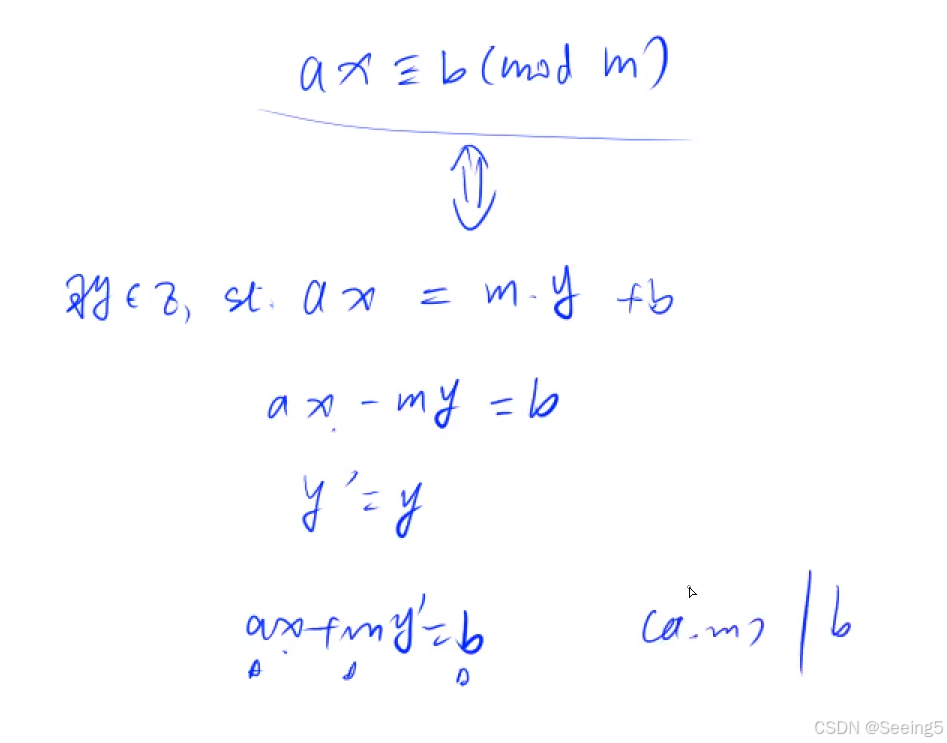 ax ≡ b (mod m)
∃y ∈ Z, st. ax = m·y + b
ax - my = b
y' = y
ax + my' = b
(a.m) | b
CSDN @Seeing5